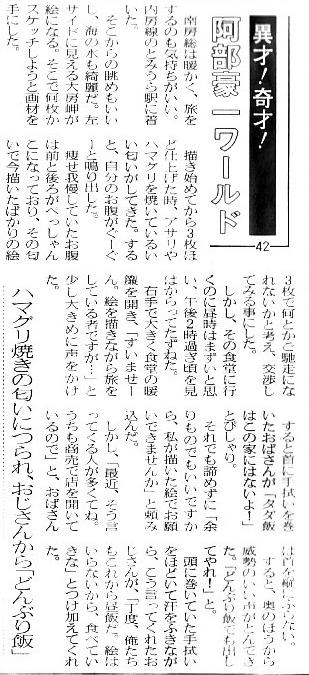 異才！奇才！
阿部豪一ワールド
42
南房総は暖かく、旅を
するのも気持ちがいい。
内房線のとみうら駅に着
いた。
そこからの眺めもいい
し、海の水も綺麗だ。左
サイドに見える大房岬が
絵になる。そこで何枚か
スケッチしようと画材を
手にした。
描き始めてから3枚ほ
ど仕上げた時、アサリや
ハマグリを焼いているい
い匂いがしてきた。する
と、自分のお腹がぐーぐ
ーと鳴り出した。
痩せ我慢していたお腹
は前と後ろがぺっしゃん
こになっており、その匂
いで今描いたばかりの絵
3枚で何とかご馳走にな
れないかと考え、交渉し
てみる事にした。
しかし、その食堂に行
くのに昼時はまずいと思
い、午後2時過ぎ頃を見
はからってたずねた。
右手で大きく食堂の暖
簾を開き、「すいませー
ん。絵を描きながら旅を
している者ですが…」と
少し大きめに声をかけ
た。
ハマグリ焼きの匂いにつられ、おじさんから「どんぶり飯」
すると首に手拭いを巻
いたおばさんが「タダ飯
はこの家にはないよ！」
とぴしゃり。
それでも諦めずに「余
りものでもいいですか
ら、私が描いた絵でお願
いできませんか」と頼み
込んだ。
しかし、「最近、そう言
ってくる人が多くてね。
うちも商売で店を開いて
いるので」と、おばさん
は首を縦にふらない。
すると、奥のほうから
威勢のいい声がとんでき
た。「どんぶり飯でも出し
てやれ！」と。
頭に巻いていた手拭い
をほどいて汗をふきなが
ら、こう言ってくれたお
じさんが、「丁度、俺たち
もこれから昼飯だ。絵は
いらないから、食べてい
きな」とつけ加えてくれ